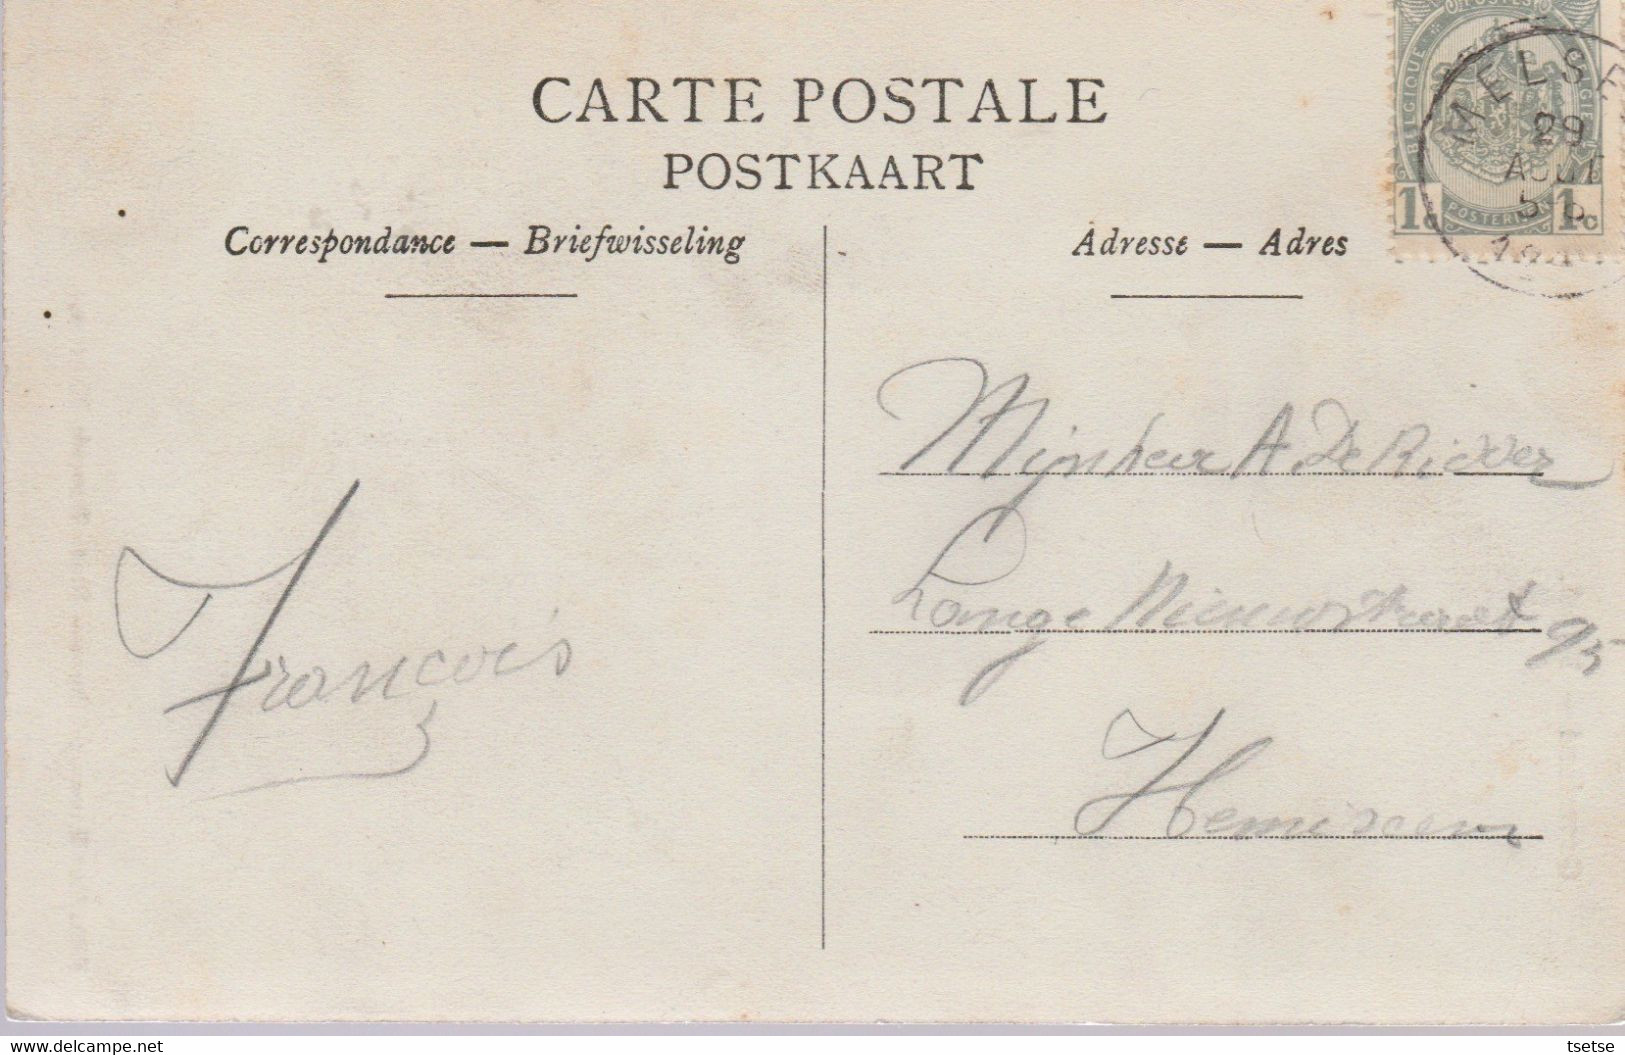 CARTE POSTALE
POSTKAART
Correspondance — Briefwisseling
Adresse — Adres
POSTES
BELGIQUE
BELGIE
1c 1c
MELSE
29
AOUT
Mijnheer A. De Ridder
Lange Nieuwstraat 95
Hemixem
François
delcampe.com
tsetse